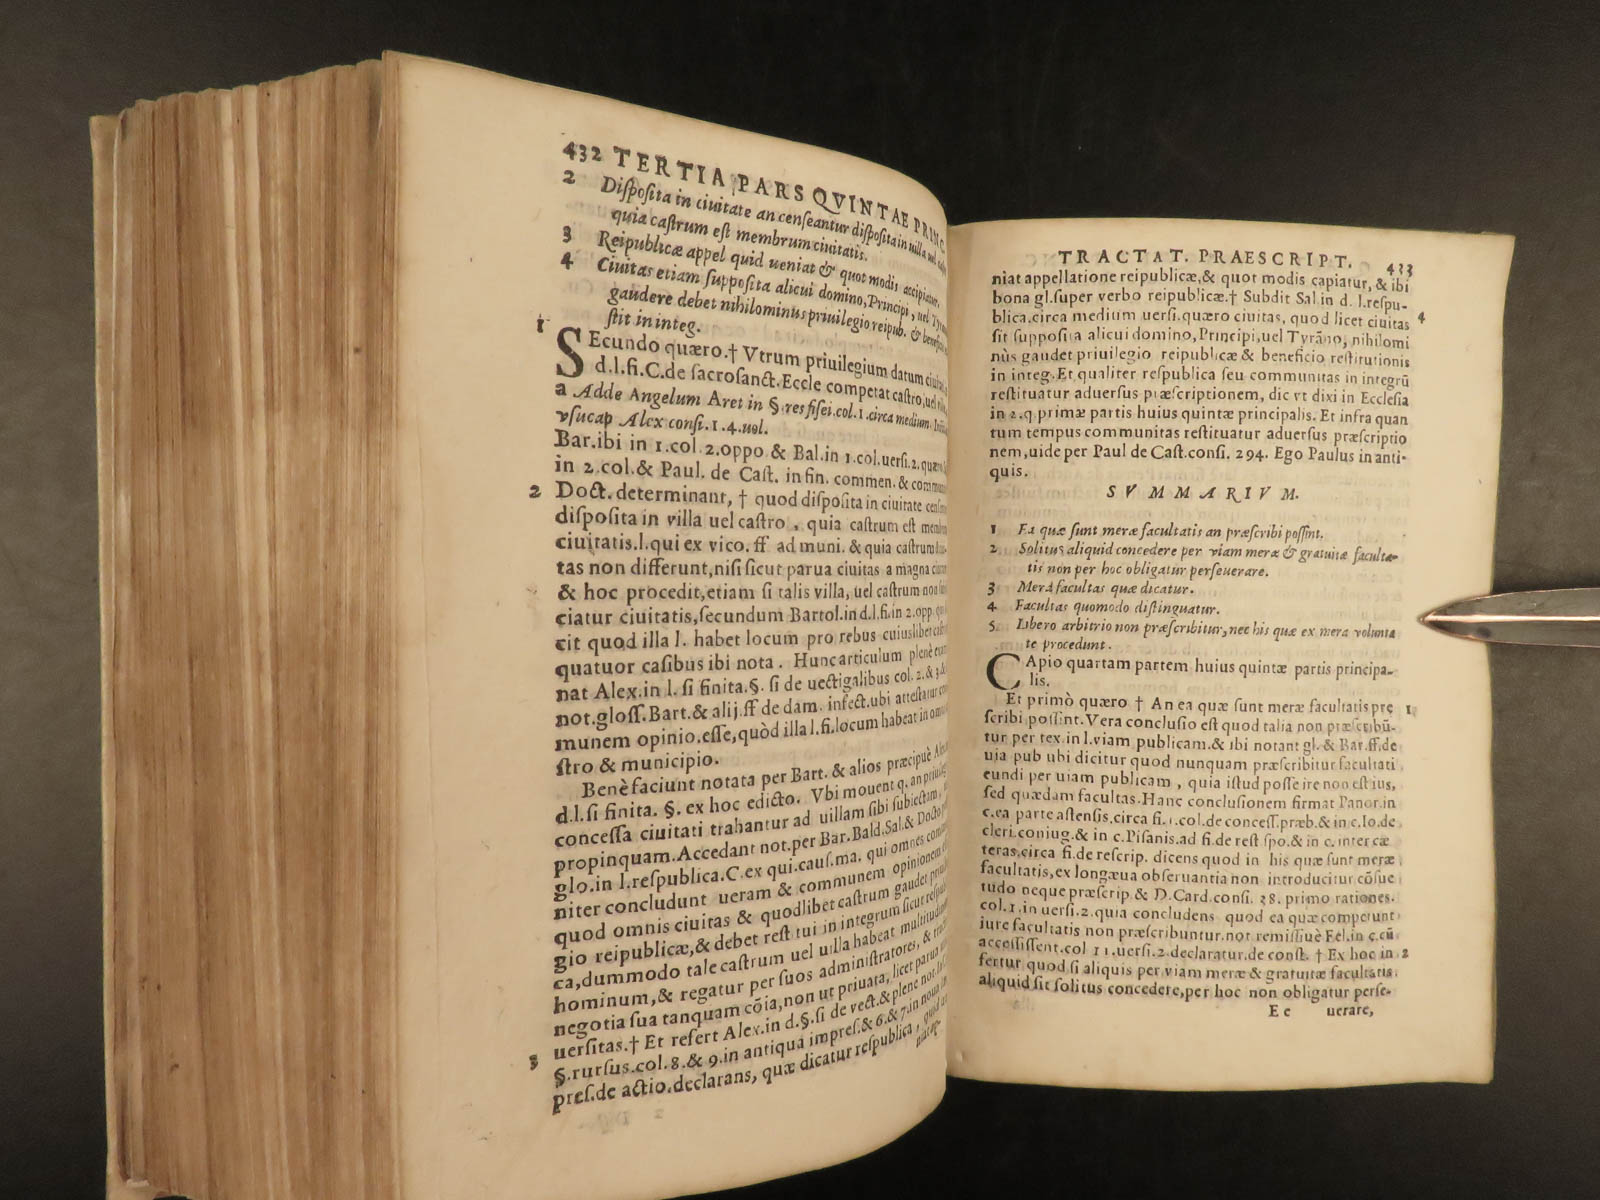 432 TERTIA PARS QVINTAE PRINC
2 Diſpoſita in ciuitate an cenſeantur diſpoſita in uilla uel
quia caſtrum eſt membrum ciuitatis.
3 Reipublicæ appel quid ueniat & quot modis accipiatur.
4 Ciuitas etiam ſuppoſita alicui domino, Principi, uel Tyran
gaudere debet nihilominus priuilegio reipub. & benefici
ſtit in integ.
1
SEcundo quæro.† Vtrum priuilegium datum ciuita
d.l.fi.C.de ſacroſanct.Eccle competat caſtro, uel
a Adde Angelum Aret in §.res fiſci.col.1.circa medium.
vſucap Alex conſi.1.4.uol.
Bar.ibi in 1.col.2.oppo & Bal.in 1.col.uerſi.2.quæro
in 2.col.& Paul. de Caſt. in fin. commen. & commun
2 Doct. determinant, † quod diſpoſita in ciuitate cenſ
diſpoſita in villa uel caſtro, quia caſtrum eſt mem
ciuitatis.l.qui ex vico.ff ad muni. & quia caſtrum
tas non differunt, niſi ſicut parua ciuitas a magna
& hoc procedit, etiam ſi talis villa, uel caſtrum non
ciatur ciuitatis, ſecundum Bartol.in d.l.fi.in 2.opp.
cit quod illa l. habet locum pro rebus cuiuslibet
quatuor caſibus ibi nota. Hunc articulum plenè
nat Alex.in l. ſi finita.§. ſi de uectigalibus col. 2.& 3.&
not.gloſſ.Bart.& alij.ff de dam. infect.ubi atteſtatur
munem opinio.eſſe, quòd illa l.fi.locum habeat in
ſtro & municipio.
Benè faciunt notata per Bart. & alios præcipuè
d.l.ſi finita. §. ex hoc edicto. Vbi mouent q. an
conceſſa ciuitati trahantur ad uillam ſibi ſubiectam,
propinquam. Accedant not.per Bar. Bald. Sal.& Docto
glo.in l.reſpublica.C.ex qui.cauſ.ma. qui omnes
niter concludunt ueram & communem opinionem
quod omnis ciuitas & quodlibet caſtrum gaudet
gio reipublicæ, & debet reſtitui in integrum ſicut
ca, dummodo tale caſtrum uel uilla habeat multitudin
hominum, & regatur per ſuos adminiſtratores, &
negotia ſua tanquam cõia, non ut priuata, licet parua
uerſitas.† Et refert Alex.in d.§.ſi de vect.& plene not.
3 §.rurſus.col.8.& 9.in antiqua impreſ.& 6.& 7.in
preſ.de actio.declarans, quæ dicatur reſpublica,
TRACTAT. PRAESCRIPT. 433
niat appellatione reipublicæ, & quot modis capiatur, & ibi
bona gl.ſuper verbo reipublicæ.† Subdit Sal.in d. l.reſpu-
blica.circa medium uerſi.quæro ciuitas, quod licet ciuitas 4
ſit ſuppoſita alicui domino, Principi, uel Tyrãno, nihilomi
nùs gaudet priuilegio reipublicæ & beneficio reſtitutionis
in integ. Et qualiter reſpublica ſeu communitas in integrũ
reſtituatur aduerſus præſcriptionem, dic vt dixi in Eccleſia
in 2.q.primæ partis huius quintæ principalis. Et infra quan
tum tempus communitas reſtituatur aduerſus præſcriptio
nem, uide per Paul de Caſt.conſi. 294. Ego Paulus in anti-
quis.
SVMMARIVM.
1 Ea quæ ſunt meræ facultatis an præſcribi poſſint.
2 Solitus aliquid concedere per viam meræ & gratuitæ faculta-
tis non per hoc obligatur perſeuerare.
3 Mera facultas quæ dicatur.
4 Facultas quomodo diſtinguatur.
5 Libero arbitrio non præſcribitur, nec his quæ ex mera volunta
te procedunt.
CApio quartam partem huius quintæ partis principa-
lis.
Et primò quæro † An ea quæ ſunt meræ facultatis præ 1
ſcribi poſſint. Vera concluſio eſt quod talia non præſcribũ-
tur per tex.in l.viam publicam.& ibi notant gl.& Bar.ff.de
uia pub ubi dicitur quod nunquam præſcribitur facultati
eundi per uiam publicam, quia iſtud poſſe ire non eſt ius,
ſed quædam facultas. Hanc concluſionem firmat Panor.in
c.ea parte aſtenſis.circa fi.1.col.de conceſſ.præb.& in c.Io.de
cleri.coniug.& in c.Piſanis.ad fi.de reſt ſpo.& in c.inter cæ
teras.circa fi.de reſcrip. dicens quod in his quæ ſunt meræ
facultatis, ex longæua obſeruantia non introducitur cõſue
tudo neque præſcrip.& D.Card.conſi. 38. primo rationes.
col.1.in uerſi.2.quia concludens quod ea quæ competunt
iure facultatis non præſcribuntur.not remiſſiuè Fel.in c.cũ
acceſſiſſent.col 11.uerſi.2.declaratur.de conſt. † Ex hoc in 2
fertur quod ſi aliquis per viam meræ & gratuitæ facultatis
aliquid ſit ſolitus concedere, per hoc non obligatur perſe-
Ee uerare,